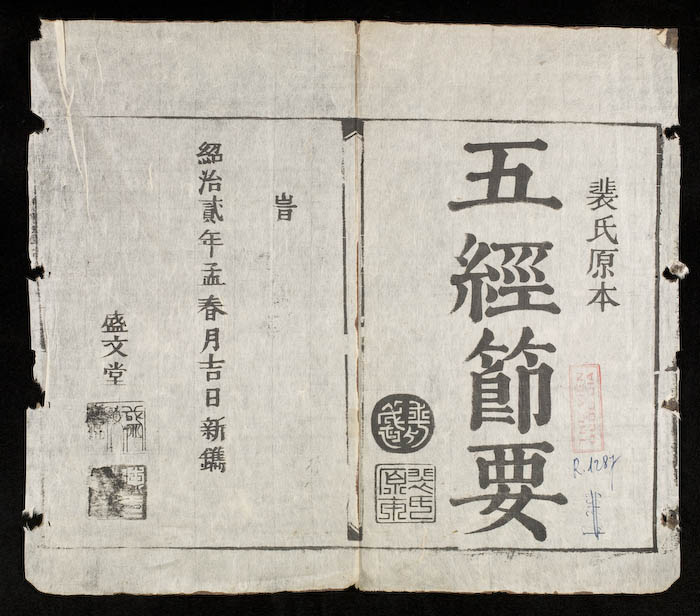 裴氏原本
五經節要
裴氏原本
R.1287
旹
紹治貳年孟春月吉日新鐫
盛文堂